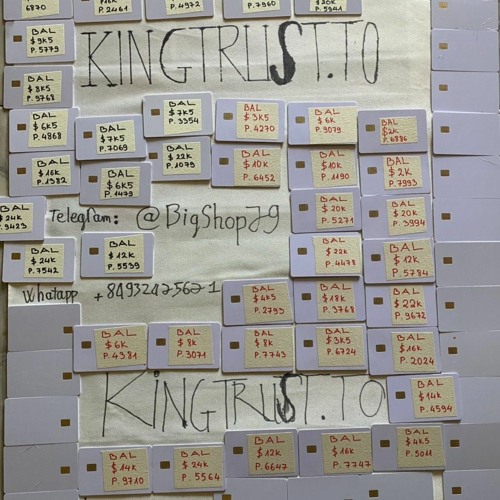 6870
P. 2461
P. 4972
P. 7960
P. 5941
BAL
$9K5
P. 5779
KINGTRUST.TO
BAL
$8K5
P. 9768
BAL
$6K5
P. 4868
BAL
$7K5
P. 7069
BAL
$7K5
P. 3354
BAL
$3K5
P. 4270
BAL
$6K
P. 9079
BAL
$2K
P. 6886
BAL
$16K
P. 1382
BAL
$6K5
P. 1479
BAL
$22K
P. 1079
BAL
$10K
P. 6452
BAL
$10K
P. 1190
BAL
$2K
P. 7993
BAL
$24K
P. 9423
Telegram: @BigShop79
BAL
$20K
P. 5271
BAL
$20K
P. 3994
BAL
$24K
P. 7542
BAL
$12K
P. 5539
BAL
$22K
P. 4478
BAL
$12K
P. 5784
Whatapp +84932425621
BAL
$4K5
P. 2793
BAL
$18K
P. 3768
BAL
$22K
P. 9672
BAL
$6K
P. 4381
BAL
$8K
P. 3071
BAL
$8K
P. 7743
BAL
$3K5
P. 6724
BAL
$16K
P. 2024
KINGTRUST.TO
BAL
$14K
P. 4594
BAL
$14K
P. 9710
BAL
$24K
P. 5564
BAL
$12K
P. 6647
BAL
$16K
P. 7747
BAL
$4K5
P. 5011